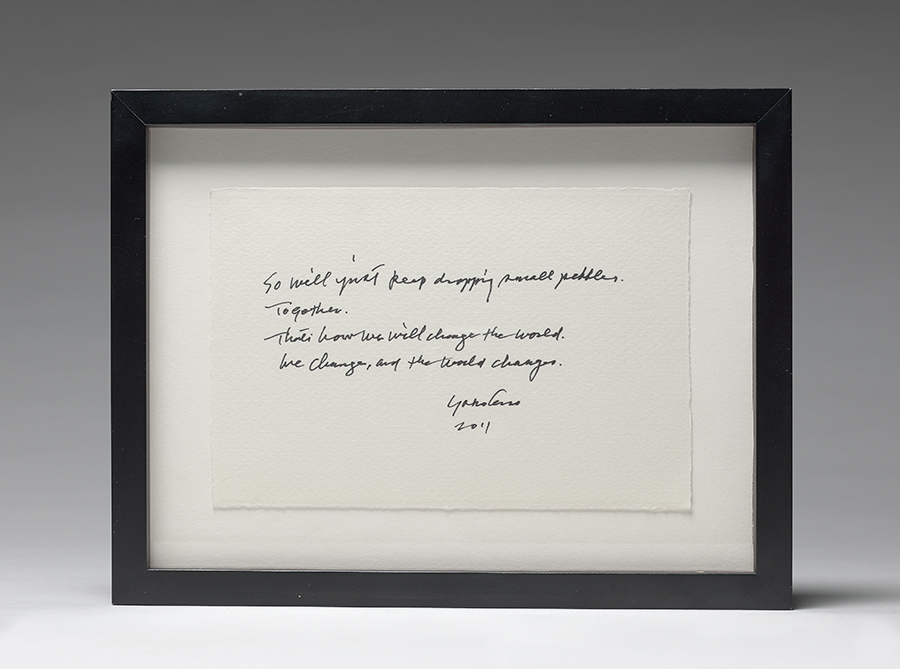 So we'll just keep dropping small pebbles.
Together.
That's how we will change the world.
We change, and the world changes.
Yoko Ono
2011